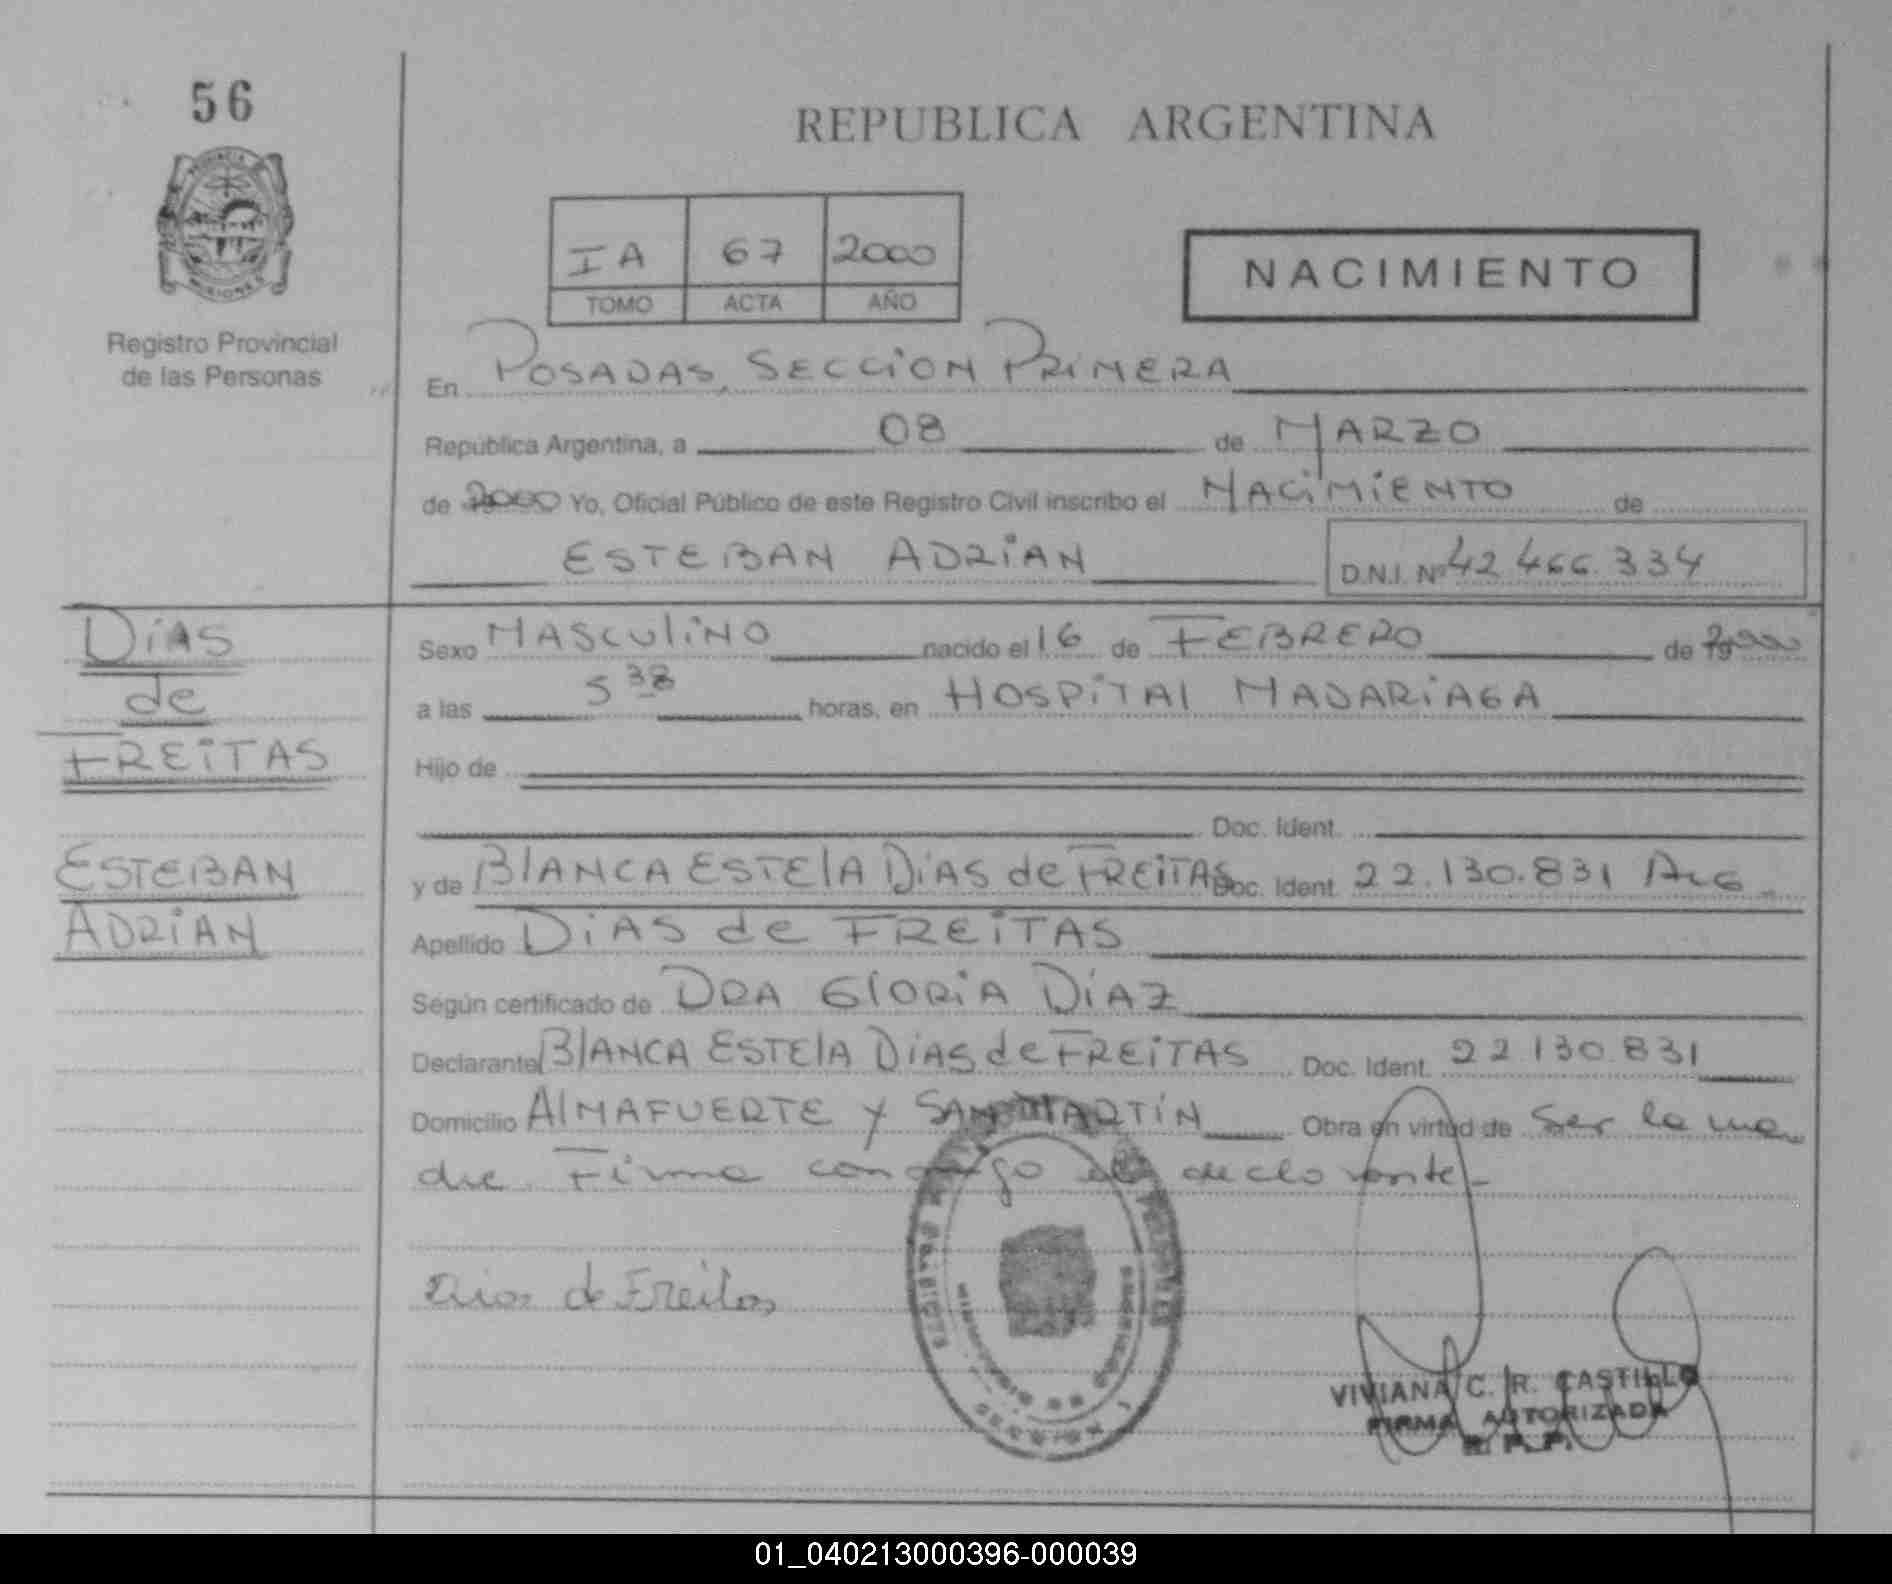 56
REPUBLICA ARGENTINA
IA 67 2000
TOMO ACTA AÑO
NACIMIENTO
PROVINCIA
MISIONES
Registro Provincial
de las Personas
En POSADAS, SECCION PRIMERA
República Argentina, a 08 de MARZO
de 2000 Yo, Oficial Público de este Registro Civil inscribo el NACIMIENTO de
ESTEBAN ADRIAN D.N.I. Nº 42.466.334
DIAS
de
FREITAS
ESTEBAN
ADRIAN
Sexo MASCULINO nacido el 16 de FEBRERO de 2000
a las 5 38 horas, en HOSPITAL MADARIAGA
Hijo de
Doc. Ident.
y de BLANCA ESTELA DIAS de FREITAS Doc. Ident. 22.130.831 ARG
Apellido DIAS de FREITAS
Según certificado de DRA GLORIA DIAZ
Declarante BLANCA ESTELA DIAS de FREITAS Doc. Ident. 22.130.831
Domicilio ALMAFUERTE Y SAN MARTIN Obra en virtud de ser la ma
dre. Firma conmigo declarante.-
Dias de Freitas
VIVIANA C. R. CASTILLO
FIRMA AUTORIZADA
R. P. P.
01_040213000396-000039